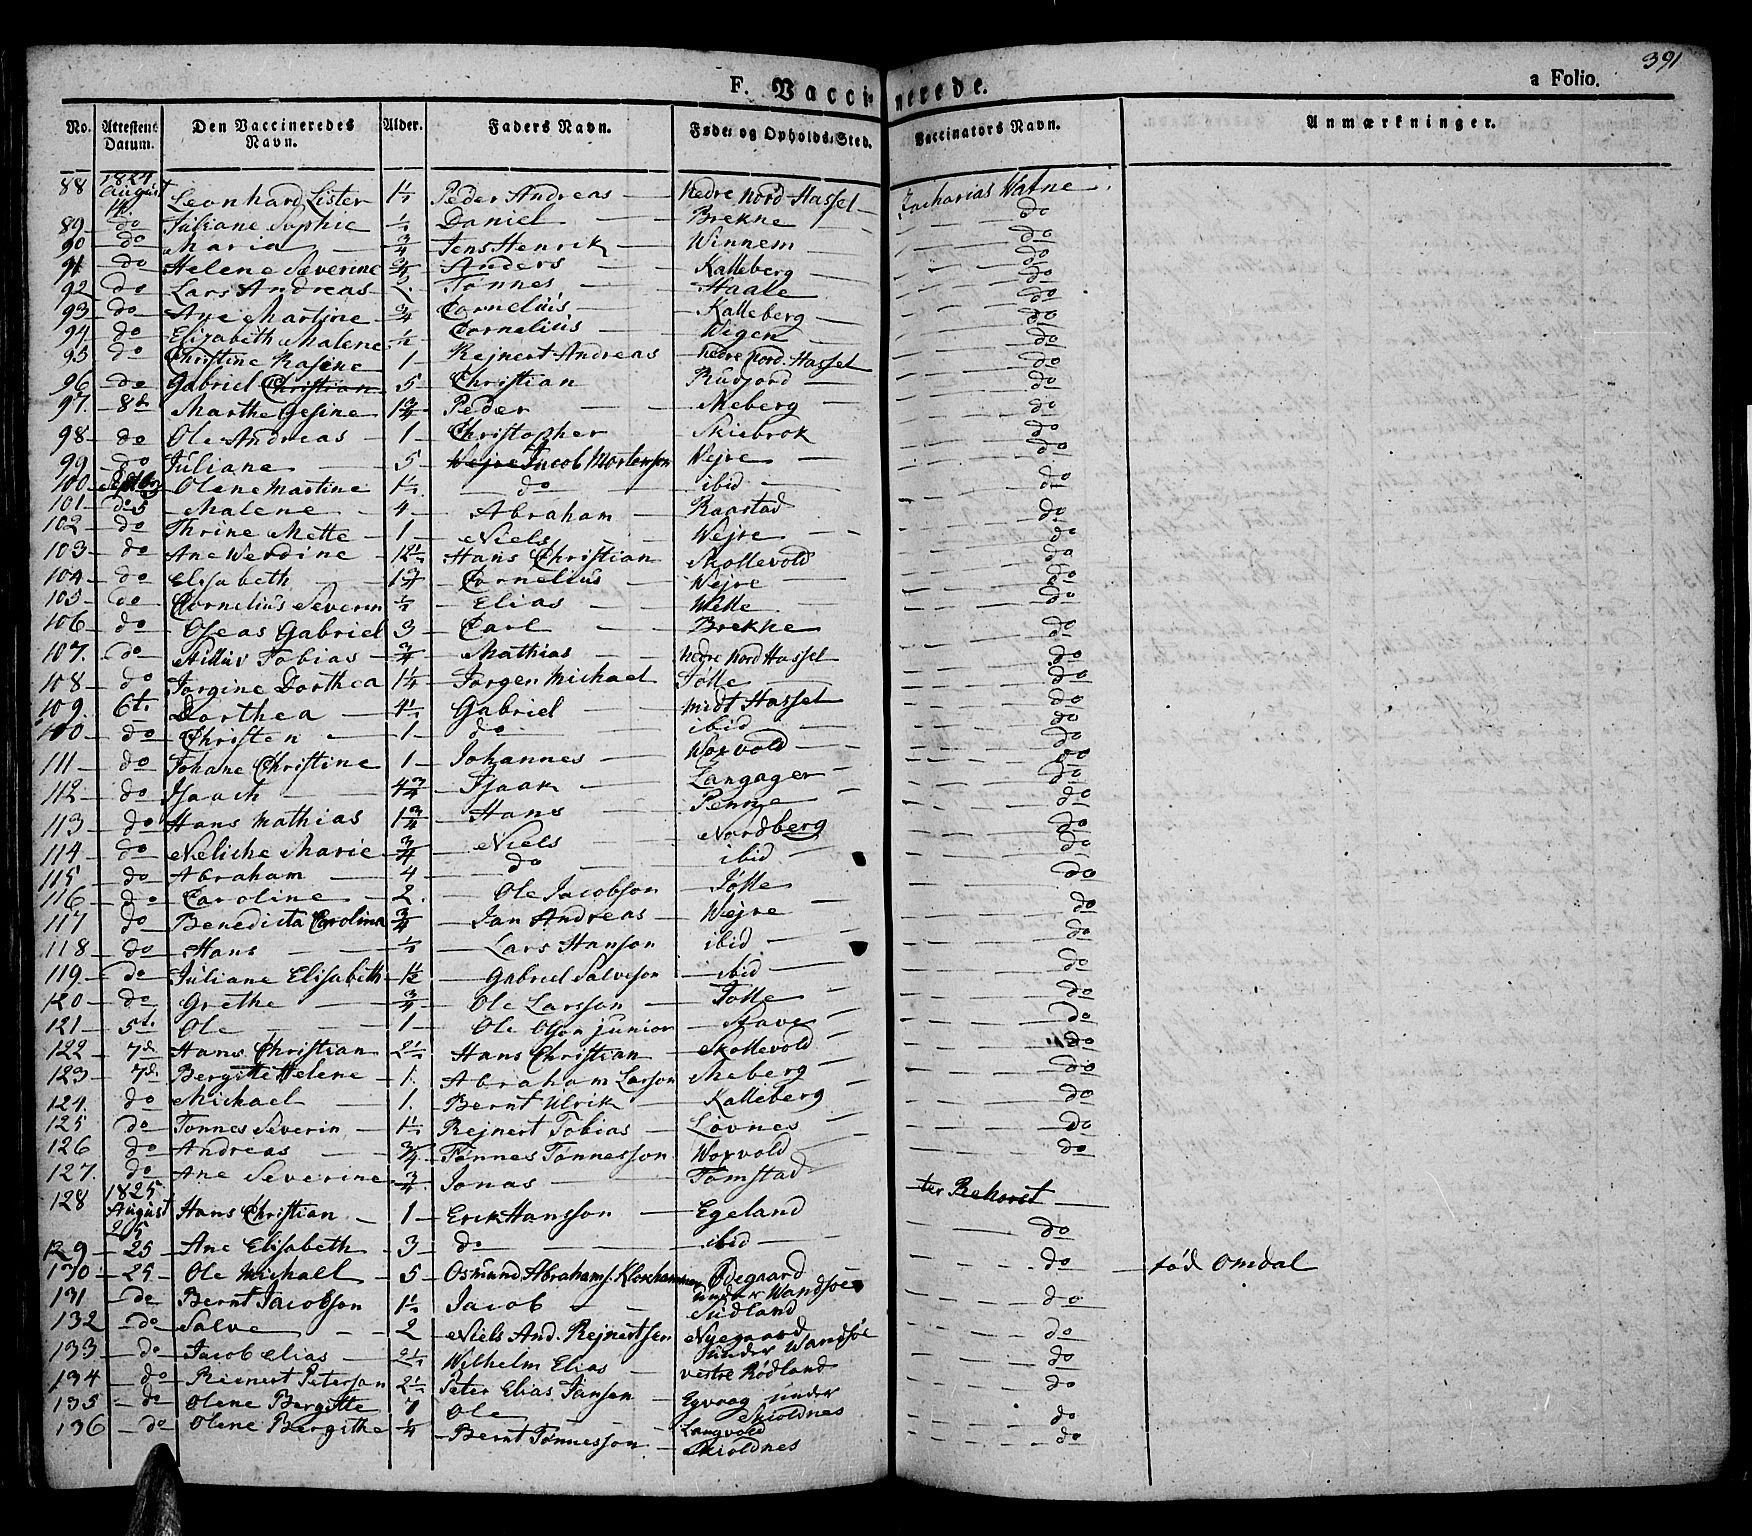 391
F. Vaccinerede. a Folio.
No. Attestens Datum. Den Vaccineredes Navn. Alder. Faders Navn. Føde- og Opholds-Sted. Vaccinators Navn. Anmærkninger.
88 1824 August 14. Leonhard Lister 1½ Peder Andreas Nedre Nord Hassel Zacharias Vatne
89 do Juliane Sophie ½ Daniel Brekne do
90 do Maria ¾ Jens Henrik Winnem do
91 do Helene Severine ¾ Anders Kalleberg do
92 do Lars Andreas Tønnes Haale do
93 do Aye Martine ¾ Cornelius Kalleberg do
94 do Elizabeth Malene ½ Cornelius Wigen do
95 do Christine Rasine 1 Rejnert Andreas Nedre Nord Hassel do
96 do Gabriel Christian 5 Christian Rudjord do
97. 8de Marthe Gesine 1¾ Peder Meberg do
98 do Ole Andreas 1 Christopher Skiebrok do
99 do Juliane 5 Wejre Jacob Mortenson Wejre do
100 Olene Martine 1½ do ibid do
101 do Malene 4 Abraham Raastad do
102 do Thrine Mette 1 Niels Wejre do
103 do Ane Werdine 12½ Hans Christian Skollevold do
104 do Elisabeth 1¾ Cornelius Wejre do
105 do Cornelius Severin ½ Elias do
106 do Oseas Gabriel 3 Carl Brekne do
107. do Nillus Tobias ¾ Mathias Nedre Nord Hassel do
108 do Jørgine Dorthea 1¼ Jørgen Michael Jølle do
109. 6te Dorthea 4½ Gabriel Midt Hassel do
110 do Christen 1 do ibid do
111 do Johane Christine 1 Johannes Worvold do
112 do Isaach 4¾ Isaak Langager do
113 do Hans Mathias 1¾ Hans Penne do
114 do Neliche Marie ¾ Niels Nordberg do
115 do Abraham 4 do ibid do
116 do Caroline 2. Ole Jacobson Jølle do
117 do Benedicta Carolina ¾ Jan Andreas Wejre do
118 do Hans ½ Lars Hanson ibid do
119. do Juliane Elisabeth 1½ Gabriel Salveson ibid do
120 do Grethe ¾ Ole Larsson Jølle do
121 5te Ole 1 Ole Olson junior Stave do
122 7de Hans Christian 2½ Hans Christian Skollevold do
123 7de Bergitte Helene 1. Abraham Larson Meberg do
124. do Michael 1. Bernt Ulrik Kalleberg do
125 do Tønnes Severin 1½ Rejnert Tobias Lovnes do
126 do Andreas ¾ Tønnes Tønnesson Worvold do
127. do Ane Severine ¾ Jonas Tomstad
128 1825 August 25 Hans Christian 1 Erik Hansson Egeland Rehorst
129 25 Ane Elisabeth 3 do ibid do
130 25 Ole Michael 5 Osmund Abrahams. Klokhammer Ødegaard under Wandsøe do fød Omdal
131 do Bernt Jacobson 1½ Jacob Sudland do
132 do Salve 2 Niels And. Rejnertsen Nyegaard under Wandsøe do
133 do Jacob Elias 2½ Wilhelm Elias vestre Rødland do
134 do Rienert Peterson 2½ Peter Elias Jansen Egvaag under Skioldnes do
135 do Olene Bergitte 7 Ole Langvold do
136 do Olene Bergithe ¼ Bernt Tønnesson Skioldnes do